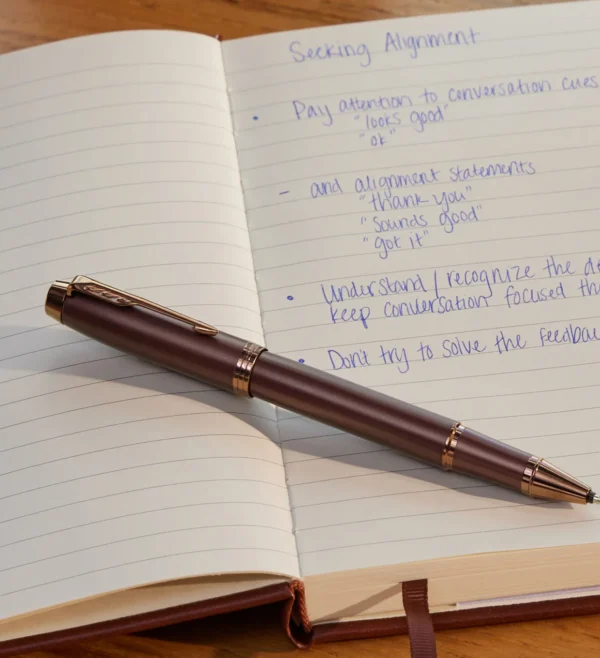 Seeking Alignment
• Pay attention to conversation cues
"looks good"
"ok"
– and alignment statements
"thank you"
"Sounds good"
"got it"
• Understand / recognize the
keep conversation focused
• Don't try to solve the